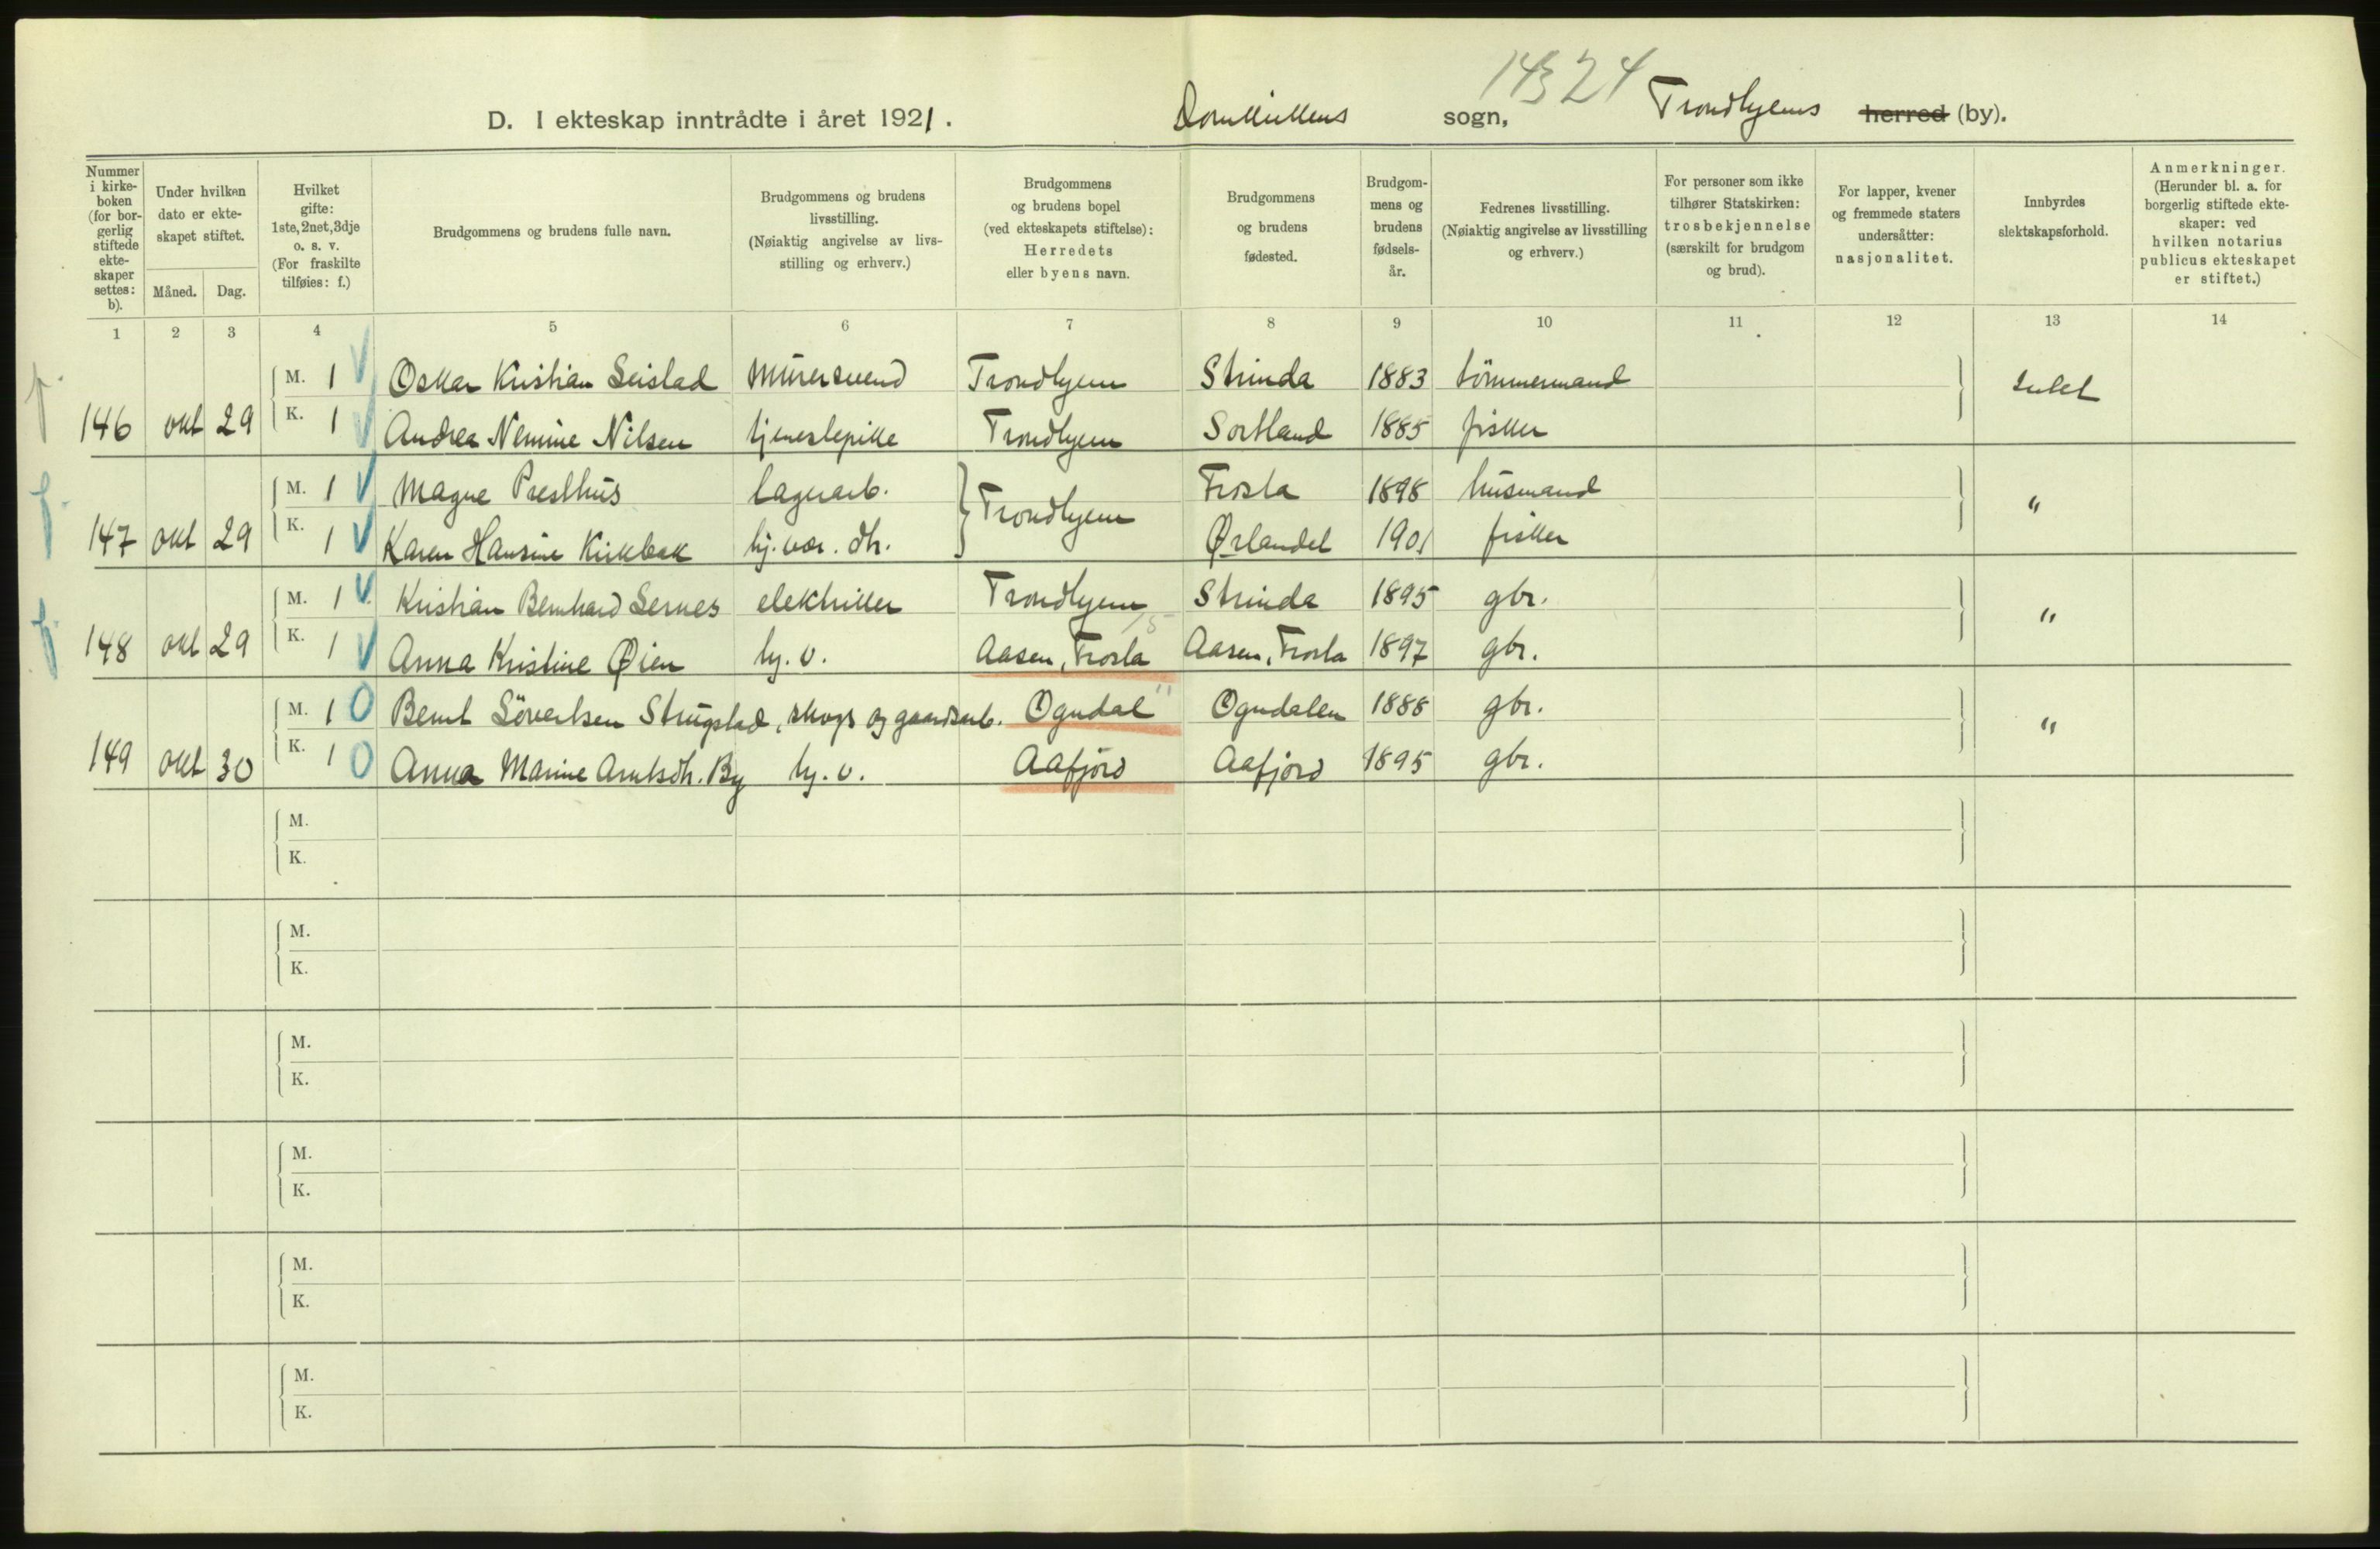 14324
D. I ekteskap inntrådte i året 1921. Domkirkens sogn, Trondhjems herred (by).
Nummer i kirke-boken (for bor-gerlig stiftede ekte-skaper settes: b).
Under hvilken dato er ekte-skapet stiftet.
Måned. Dag.
Hvilket gifte: 1ste, 2net, 3dje o. s. v. (For fraskilte tilføies: f.)
Brudgommens og brudens fulle navn.
Brudgommens og brudens livsstilling. (Nøiaktig angivelse av livs-stilling og erhverv.)
Brudgommens og brudens bopel (ved ekteskapets stiftelse): Herredets eller byens navn.
Brudgommens og brudens fødested.
Brudgom-mens og brudens fødsels-år.
Fedrenes livsstilling. (Nøiaktig angivelse av livsstilling og erhverv.)
For personer som ikke tilhører Statskirken: trosbekjennelse (særskilt for brudgom og brud).
For lapper, kvener og fremmede staters undersåtter: nasjonalitet.
Innbyrdes slektskapsforhold.
Anmerkninger. (Herunder bl. a. for borgerlig stiftede ekte-skaper: ved hvilken notarius publicus ekteskapet er stiftet.)
1 2 3 4 5 6 7 8 9 10 11 12 13 14
M. 1 Oskar Kristian Leistad murersvend Trondhjem Strinda 1883 tömmermand intet
146 okt 29 K. 1 Andrea Nilsen tjenestepike Trondhjem Sortland 1885 fisker
M. 1 Magne Presthus lagerarb. Trondhjem Frosta 1898 husmand "
147 okt 29 K. 1 Karen Hansine Kirkbak hj. vær. dtr. Ørlandet 1901 fisker
M. 1 Kristian Bernhard Sernes elektriker Trondhjem Strinda 1895 gbr. "
148 okt 29 K. 1 Anna Kristine Øien hj. v. Aasen, Frosta Aasen, Frosta 1897 gbr.
M. 1 Bernt Sövertsen Strugstad, skogs og gaardsarb. Ogndal Ogndalen 1888 gbr. "
149 okt 30 K. 1 Anna Marine Arntsdtr. By hj. v. Aafjörd Aafjörd 1895 gbr.
M.
K.
M.
K.
M.
K.
M.
K.
M.
K.
M.
K.